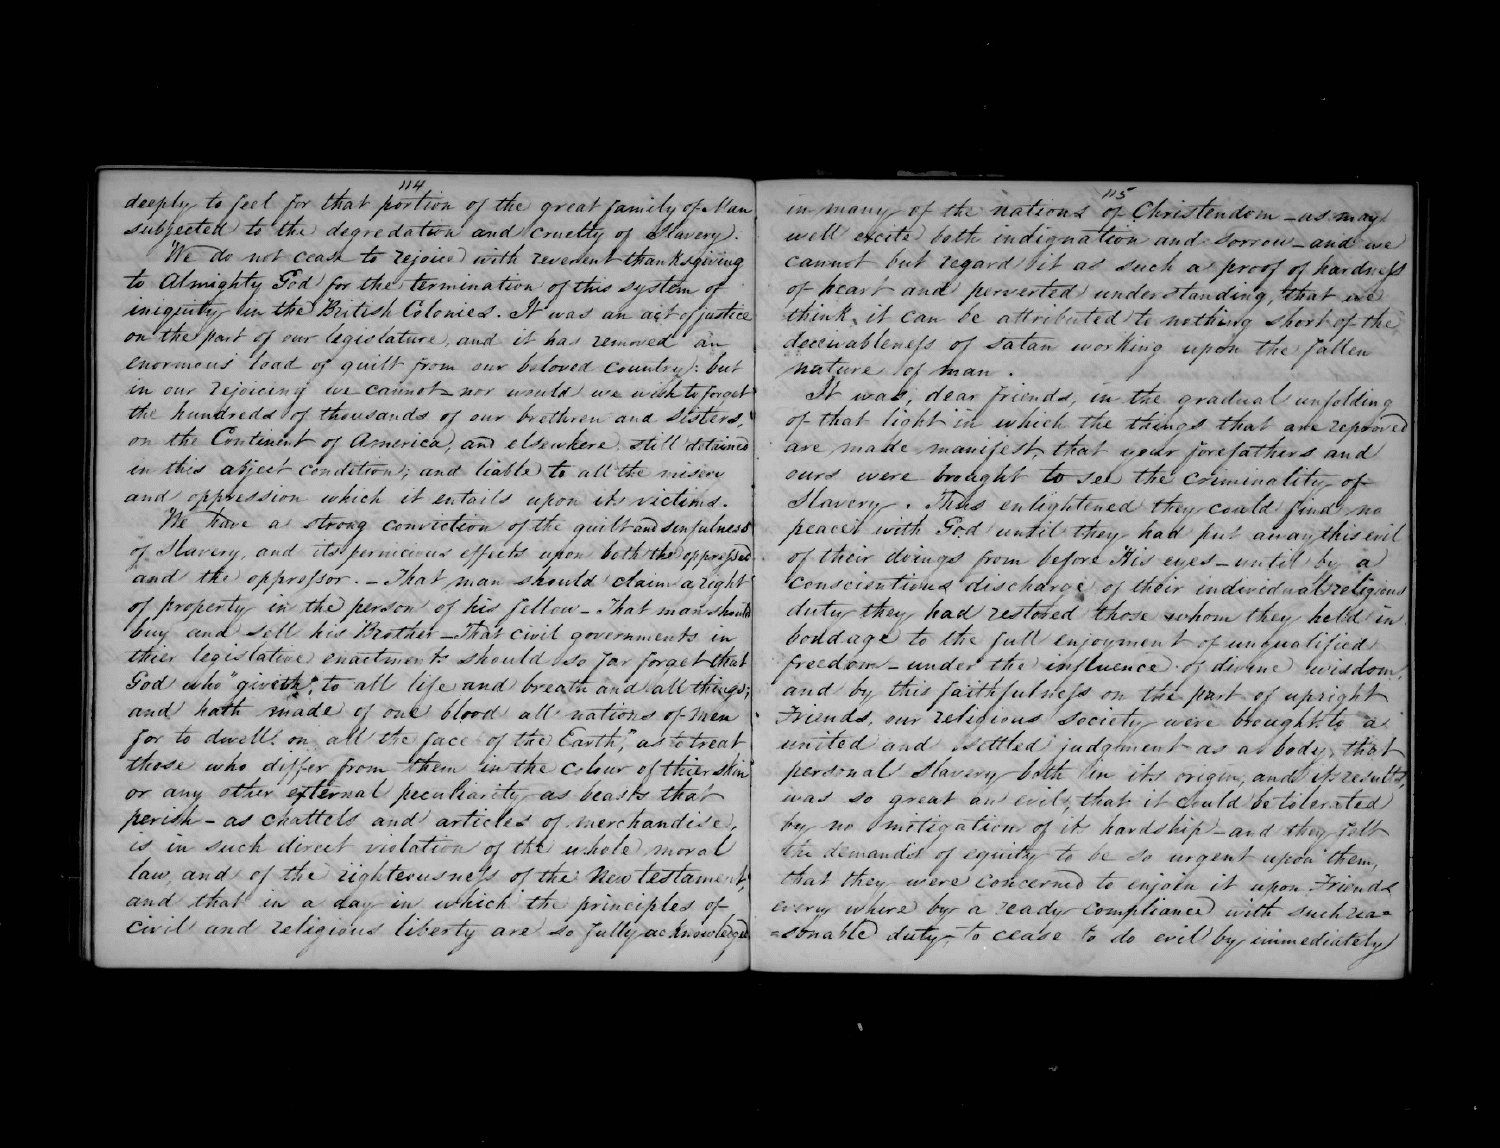 114
deeply to feel for that portion of the great family of Man
subjected to the degredation and cruelty of Slavery.
We do not cease to rejoice with reverent thanksgiving
to Almighty God for the termination of this system of
iniquity in the British Colonies. It was an act of justice
on the part of our legislature, and it has removed an
enormous load of guilt from our beloved country: but
in our rejoicing we cannot – nor would we wish to forget
the hundreds of thousands of our brethren and sisters,
on the Continent of America, and elsewhere still detained
in this abject condition; and liable to all the misery
and oppression which it entails upon its victims.
We have a strong conviction of the guilt and sinfulness
of Slavery, and its pernicious effects upon both the oppressed
and the oppressor. – That man should claim a right
of property in the person of his fellow – That man should
buy and sell his Brother – That civil governments in
thier legislative enactments should so far forget that
God who "giveth", to all life and breath and all things;
and hath made of one blood all nations of Men
for to dwell on all the face of the Earth," as to treat
those who differ from them in the colour of thier skin
or any other external peculiarity as beasts that
perish – as chattels and articles of merchandise,
is in such direct violation of the whole moral
law, and of the righteousness of the New testament,
and that in a day in which the principles of
civil and religious liberty are so fully acknowledged
115
in many of the nations of Christendom – as may
well excite both indignation and sorrow – and we
cannot but regard it as such a proof of hardness
of heart and perverted understanding, that we
think it can be attributed to nothing short of the
deceivableness of satan working upon the fallen
nature of man.
It was, dear friends, in the gradual unfolding
of that light in which the things that are reproved
are made manifest that your forefathers and
ours were brought to see the criminality of
Slavery. Thus enlightened they could find no
peace with God until they had put away this evil
of their doings from before His eyes – until by a
conscientious discharge of their individual religious
duty they had restored those whom they held in
bondage to the full enjoyment of unqualified
freedom – under the influence of divine wisdom,
and by this faithfulness on the part of upright
Friends, our religious society were brought to a
united and settled judgment as a body, that
personal Slavery both in its origin, and its results,
was so great an evil, that it could be tolerated
by no mitigation of its hardship – and they felt
the demands of equity to be so urgent upon them,
that they were concerned to enjoin it upon Friends
every where by a ready compliance with such rea=
=sonable duty – to cease to do evil by immediately